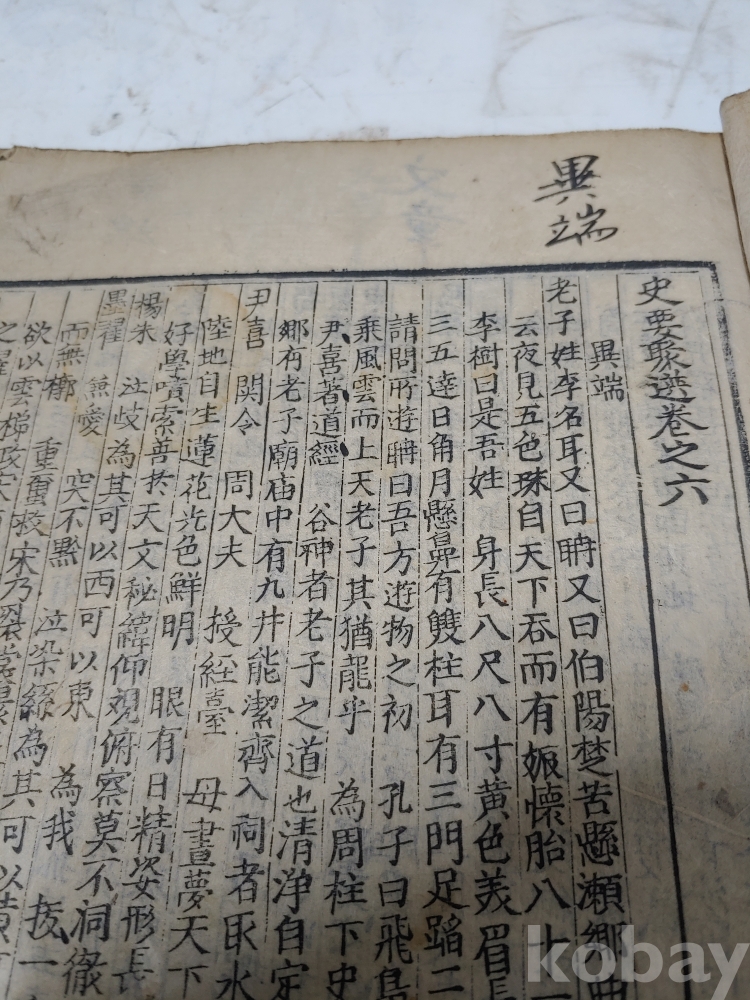 異端
史要聚選卷之六
異端
老子姓李名耳又曰聃又曰伯陽楚苦懸瀬鄉曲
云夜見五色珠自天下吞而有娠懷胎八十
李樹曰是吾姓 身長八尺八寸黃色美眉長
三五達日角月懸鼻有雙柱耳有三門足蹈二
請問所遊聃曰吾方遊物之初 孔子曰飛鳥
乘風雲而上天老子其猶龍乎 為周柱下史
尹喜著道經 谷神者老子之道也清淨自定
鄉有老子廟庙中有九井能潔齊入祠者取水
尹喜 関令 周大夫 授經臺 母晝夢天下
陸地自生蓮花光色鮮明 眼有日精姿形長
好學嘖索善於天文秘緯仰观俯察莫不洞徹
楊朱 泣歧為其可以西可以東 為我 拔一
墨翟 兼愛 突不黔 泣染絲為其可以黃可
而無槨 重繭救宋乃
欲以雲梯攻宋
kobay